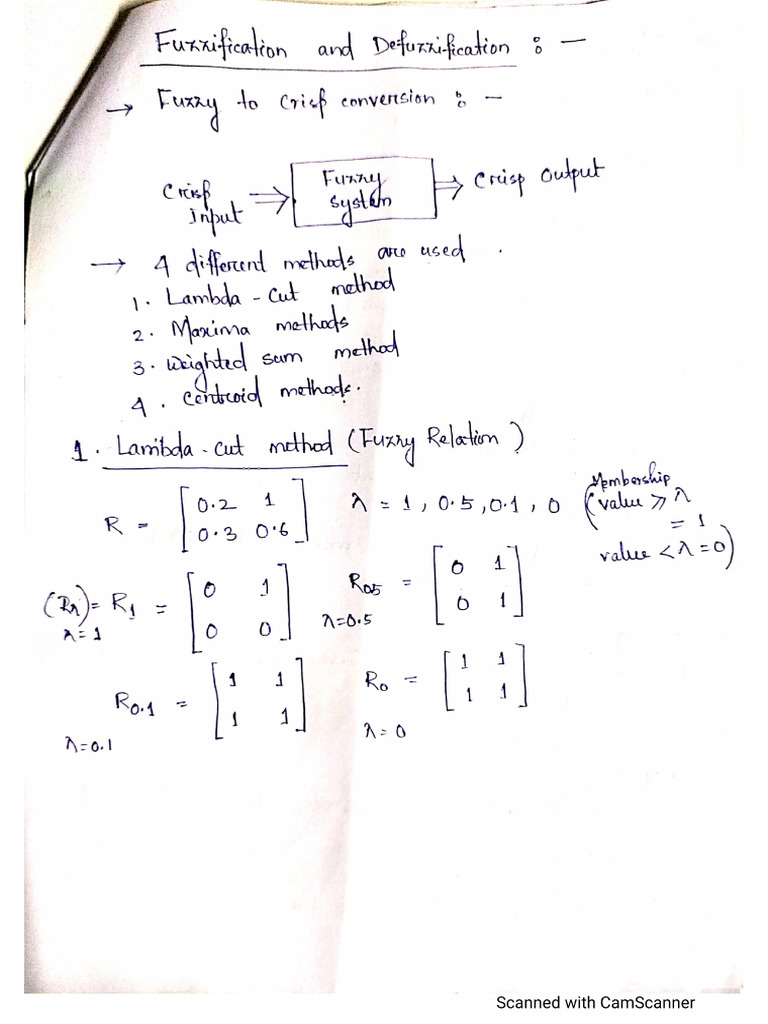 Fuzzification and Defuzzification : —
→ Fuzzy to Crisp conversion : —
Crisp Input ⇒ Fuzzy System ⇒ Crisp Output
→ 4 different methods are used .
1. Lambda - Cut method
2. Maxima methods
3. Weighted sum method
4. Centroid methods.
1. Lambda - cut method (Fuzzy Relation)
R = [0.2 1
0.3 0.6] λ = 1, 0.5, 0.1, 0 (Membership value ≥ λ = 1
value < λ = 0)
(Rλ) = R1 = [0 1
0 0] λ = 1
R0.5 = [0 1
0 1] λ = 0.5
R0.1 = [1 1
1 1] λ = 0.1
R0 = [1 1
1 1] λ = 0
Scanned with CamScanner